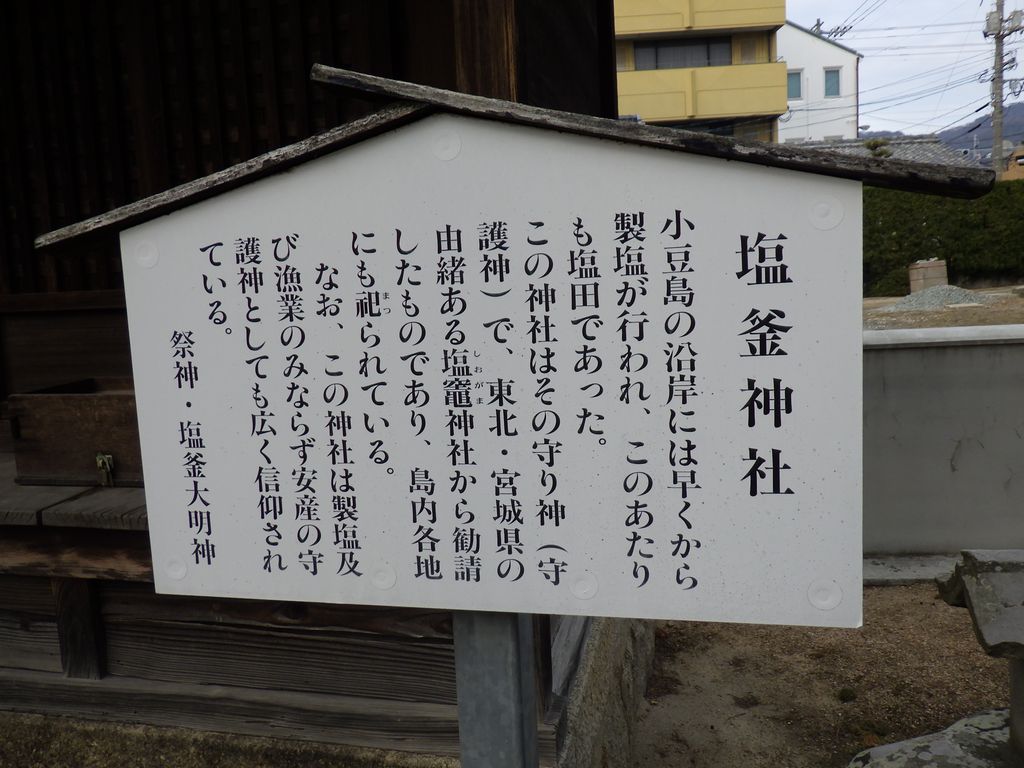 塩釜神社
小豆島の沿岸には早くから
製塩が行われ、このあたり
も塩田であった。
この神社はその守り神（守
護神）で、東北・宮城県の
由緒ある塩竈神社から勧請
しおがま
したものであり、島内各地
にも祀られている。
まつ
なお、この神社は製塩及
び漁業のみならず安産の守
護神としても広く信仰され
ている。
祭神・塩釜大明神